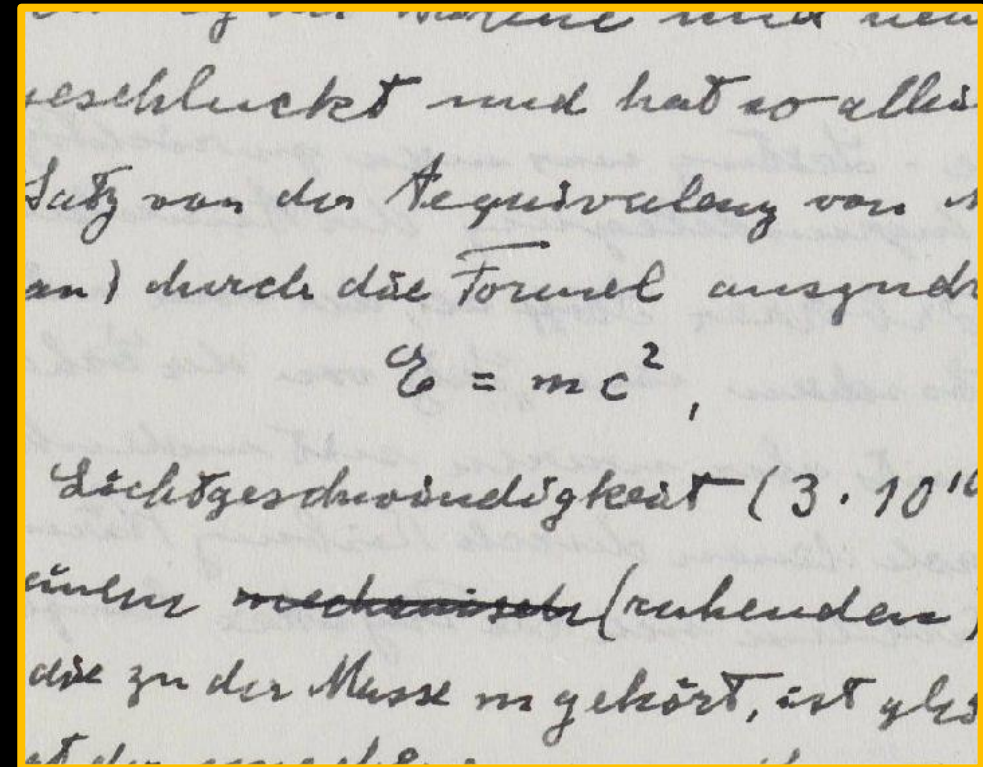 der Wärme und
geschluckt und hat so allei
Satz von der Aequivalenz von
an) durch die Formel auszudr
E = mc²,
Lichtgeschwindigkeit (3 . 10¹⁰
einem mechanisch (ruhenden)
die zu der Masse m gehört, ist glei